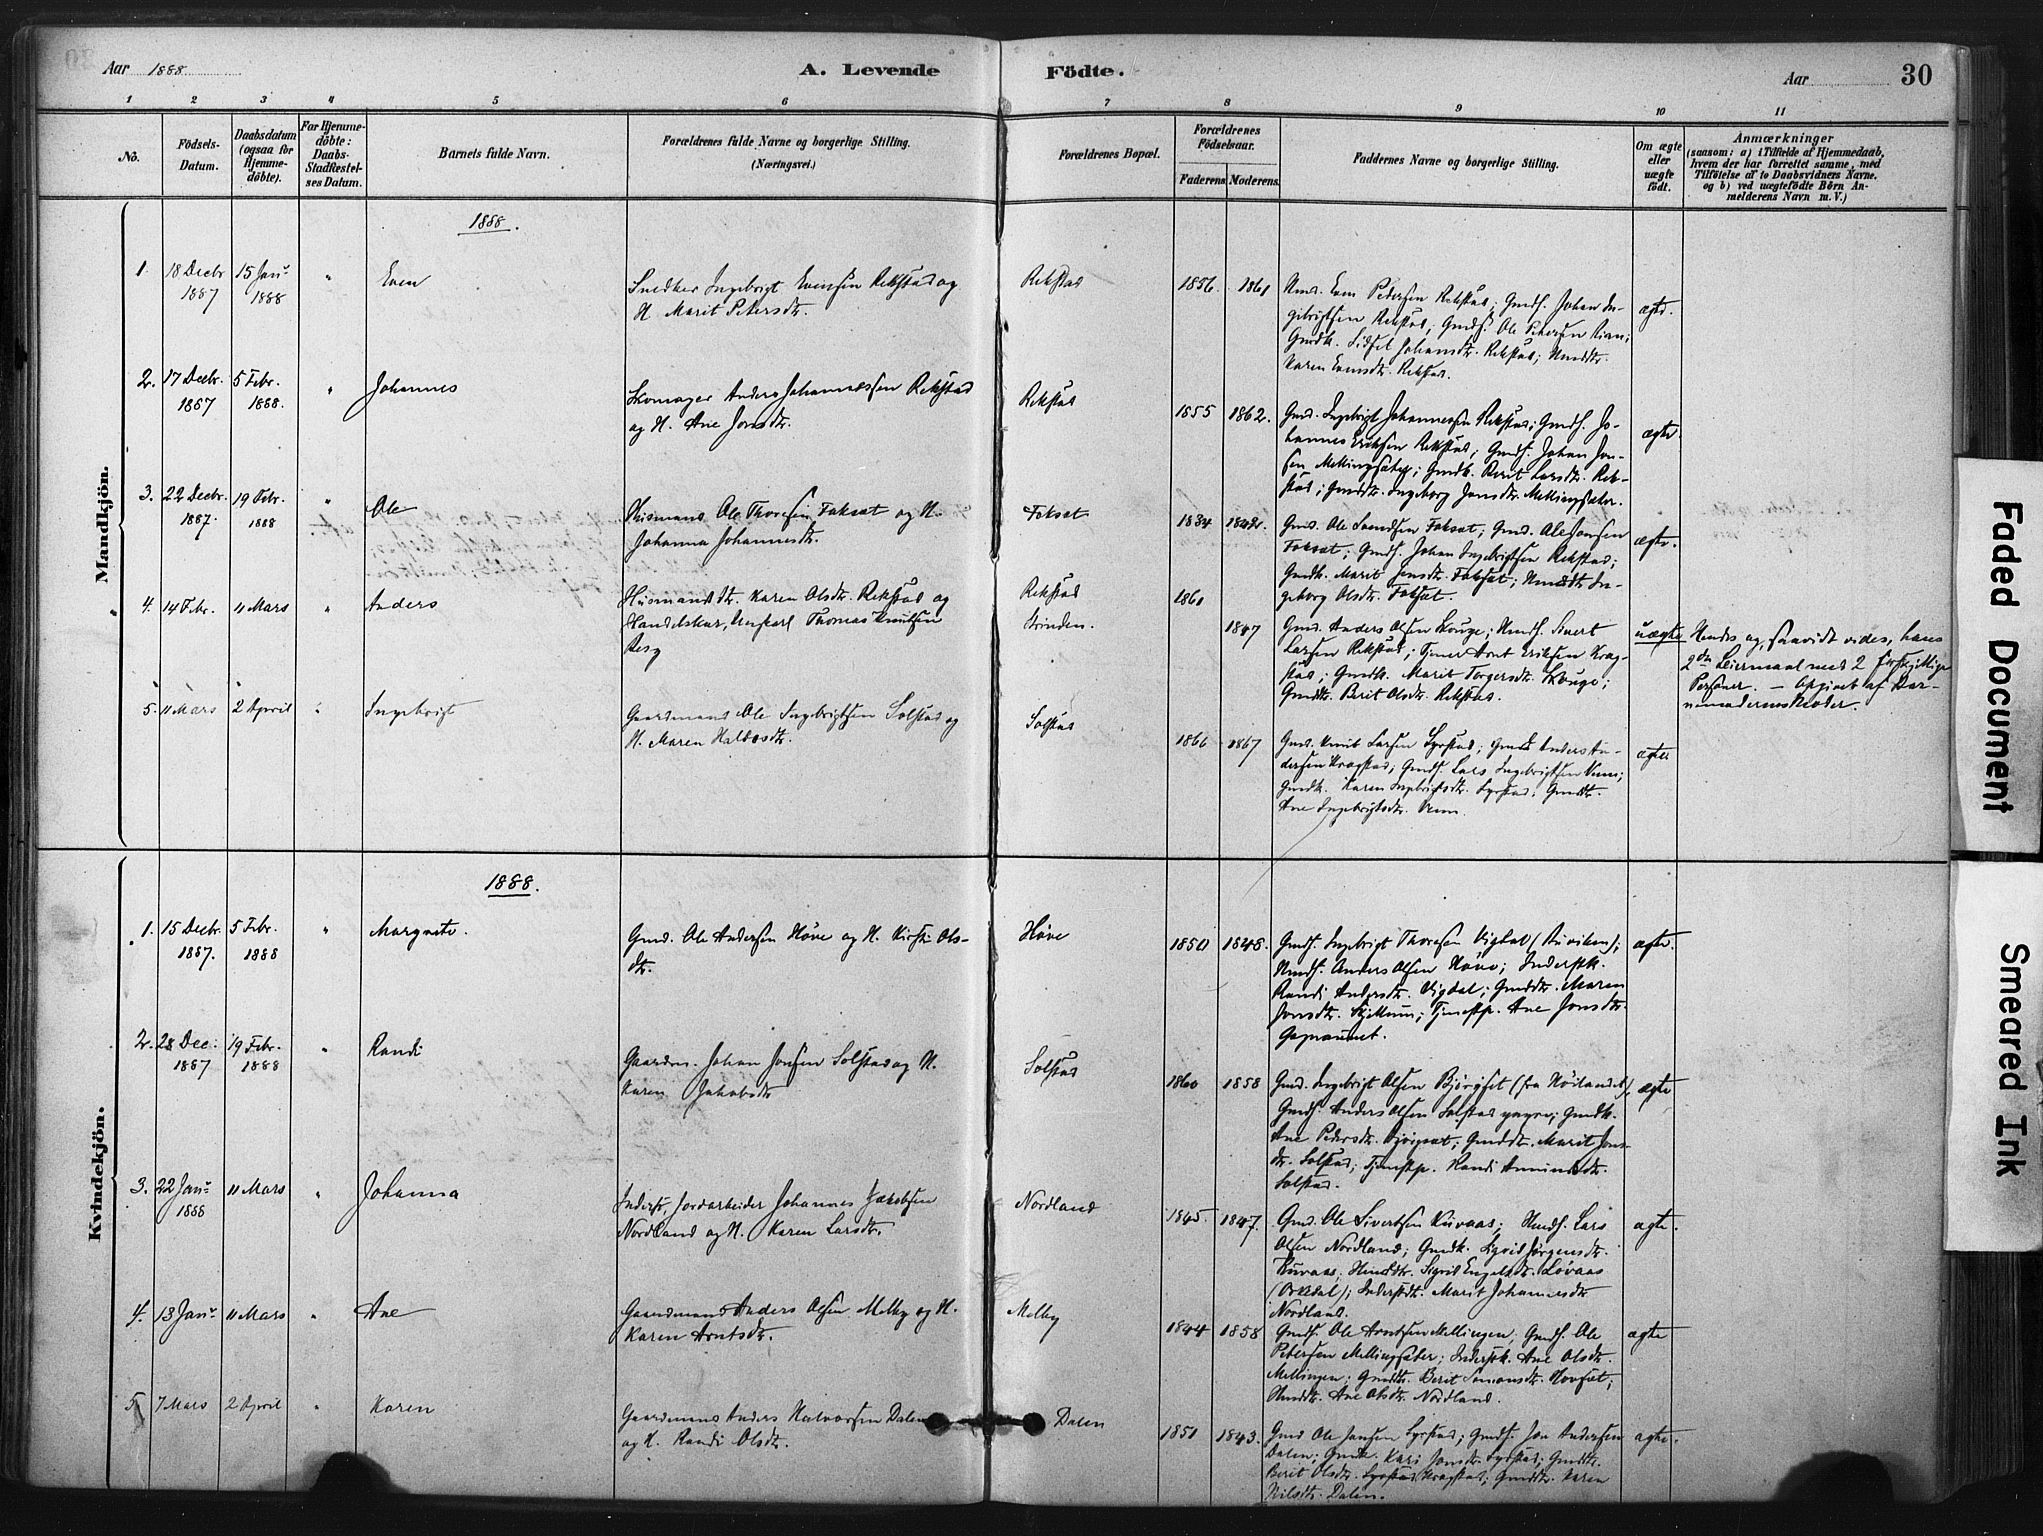 Aar 1888
A. Levende Födte.
Aar 30
1 2 3 4 5 6 7 8 9 10 11
No.
Födsels-
Datum.
Daabsdatum
(ogsaa for
Hjemme-
döbte).
For Hjemme-
döbte:
Daabs-
Stadfæstel-
ses Datum.
Barnets fulde Navn.
Forældrenes fulde Navne og borgerlige Stilling.
(Næringsvei.)
Forældrenes Bopæl.
Forældrenes
Födselsaar.
Faderens Moderens
Faddernes Navne og borgerlige Stilling.
Om ægte
eller
uægte
födt.
Anmærkninger
(saasom: a) i Tilfælde af Hjemmedaab,
hvem der har forrettet samme, med
Tilföielse af to Daabsvidners Navne.
og b) ved uægtefödte Börn An-
melderens Navn m. V.)
Mandkjön.
1888.
1. 18 Decbr 1887 15 Janr 1888 " Even
Snedker Ingebrigt Evensen Rekstad og
H. Marit Petersdtr.
Rekstad
1856. 1861
Gmd. Even Pedersen Rekstad; Gmdf. Johan In-
gebrigtsen Rekstad; Gmdf. Ole Petersen
Gmdk. Sidsel Johansdtr. Rekstad;
Karen Evensdtr. Rekstad.
ægte.
2. 17 Decbr. 1887 5 Febr. 1888. " Johannes
Skomager Anders Johannessen Rekstad
og H. Ane Jonsdtr.
Rekstad
1855 1862.
Gmd. Ingebrigt Johannessen Rekstad; Gmdf. Jo-
hannes Eriksen Rekstad; Gmdf. Johan Jon-
sen Mellingsæter; Gmdk. Berit Larsdtr. Rek-
stad; Gmddtr. Ingeborg Jonsdtr. Mellingsæter.
ægte.
3. 22 Decbr. 1887. 19 Febr. 1888 " Ole
Husmand Ole Thoresen Foksat og H.
Johanna Johannesdtr.
Foksat
1834
Gmd. Ole Svendsen Foksat; Gmd. Ole Jonsen
Foksat; Gmdf. Johan Ingebrigtsen Rekstad;
Gmdk. Marit Jensdtr. Foksat; In-
geborg Olsdtr. Foksat.
ægte.
4. 14 Febr. 11 Mars " Anders
Husmandsdtr. Karen Olsdtr. Rekstad og
Handelskar, Ungkarl Thomas Knutsen
Berg
Rekstad
Strinden.
1861
1847
Gmd. Anders Olsen Skouge; Sivert
Larsen Rekstad; Tjener Arnt Eriksen Krag-
stad; Gmdk. Marit Torgersdtr. Skouge;
Gmddtr. Berit Olsdtr. Rekstad.
uægte
Hendes og, saavidt vides, hans
2den Leiermaal med 2 forskjellige
Personer. — Opgivet af Bar-
nemoderens Moder.
5. 11 Mars 2 April " Ingebrigt
Gaardmand Ole Ingebrigtsen Solstad og
H. Maren Halvorsdtr.
Solstad
1866 1867
Gmd. Knut Larsen Syrstad; Gmd. Anders An-
dersen Kragstad; Gmdf. Lars Ingebrigtsen Venn;
Gmdk. Karen Ingebrigtsdtr. Syrstad; Gmddtr.
Ane Ingebrigtsdtr. Venn.
ægte
Kvindekjön.
1888.
1. 15 Decbr. 1887. 5 Febr. 1888 " Margrete.
Gmd. Ole Andersen Höve og H. Kirsti Ols-
dtr.
Höve
1850 1848.
Gmdf. Ingebrigt Thoresen Vigdal (Buviken);
Anders Olsen Höve; Inderstk.
Randi Andersdtr. Vigdal; Gmddtr. Maren
Jonsdtr. Skjellum; Tjenestp. Ane Jonsdtr.
ægte.
2. 28 Dec. 1887 19 Febr. 1888 " Randi
Gaardm. Johan Jonsen Solstad og H.
Karen Jakobsdtr
Solstad
1860 1858
Gmd. Ingebrigt Olsen Björgset (fra Höilandet);
Gmdf. Anders Olsen Solstad yngre; Gmdk.
Ane Pedersdtr. Gmddtr. Marit Jons-
dtr. Solstad; Tjenestp. Randi Amundsdtr.
Solstad.
ægte
3. 22 Janr 1888 11 Mars " Johanna
Inderst, Jordarbeider Johannes Jakobsen
Nordland og H. Karen Larsdtr.
Nordland
1845. 1847.
Gmd. Ole Sivertsen Kuvaas; Lars
Olsen Nordland; Gmdk. Sigrid Jörgensdtr.
Kuvaas; Sigrid Engelsdtr. Lövaas
(Orkdal); Inderstdtr. Marit Johannesdtr
Nordland.
ægte.
4. 13 Janr 11 Mars " Ane
Gaardmand Anders Olsen Melby og H.
Karen Arntsdtr.
Melby
1844 1858
Gmdf. Ole Arntsen Mellingen. Gmdf. Ole
Petersen Mellingsæter; Inderstk. Ane Olsdtr.
Mellingen; Gmddtr. Berit Simonsdtr. Hovset;
Ane Olsdtr. Nordland.
ægte
5 7 Mars 2 April " Karen
Gaardmand Anders Halvorsen Dalen
og H. Randi Olsdtr.
Dalen
1851 1843.
Gmd Ole Jonsen Syrstad; Gmdf. Jon Andersen
Dalen; Gmdk. Kari Jonsdtr. Syrstad; Gmddtr.
Berit Olsdtr. Syrstad Kragstad; Gmddtr. Karen
Nilsdtr. Dalen.
ægte.
Faded Document
Smeared Ink